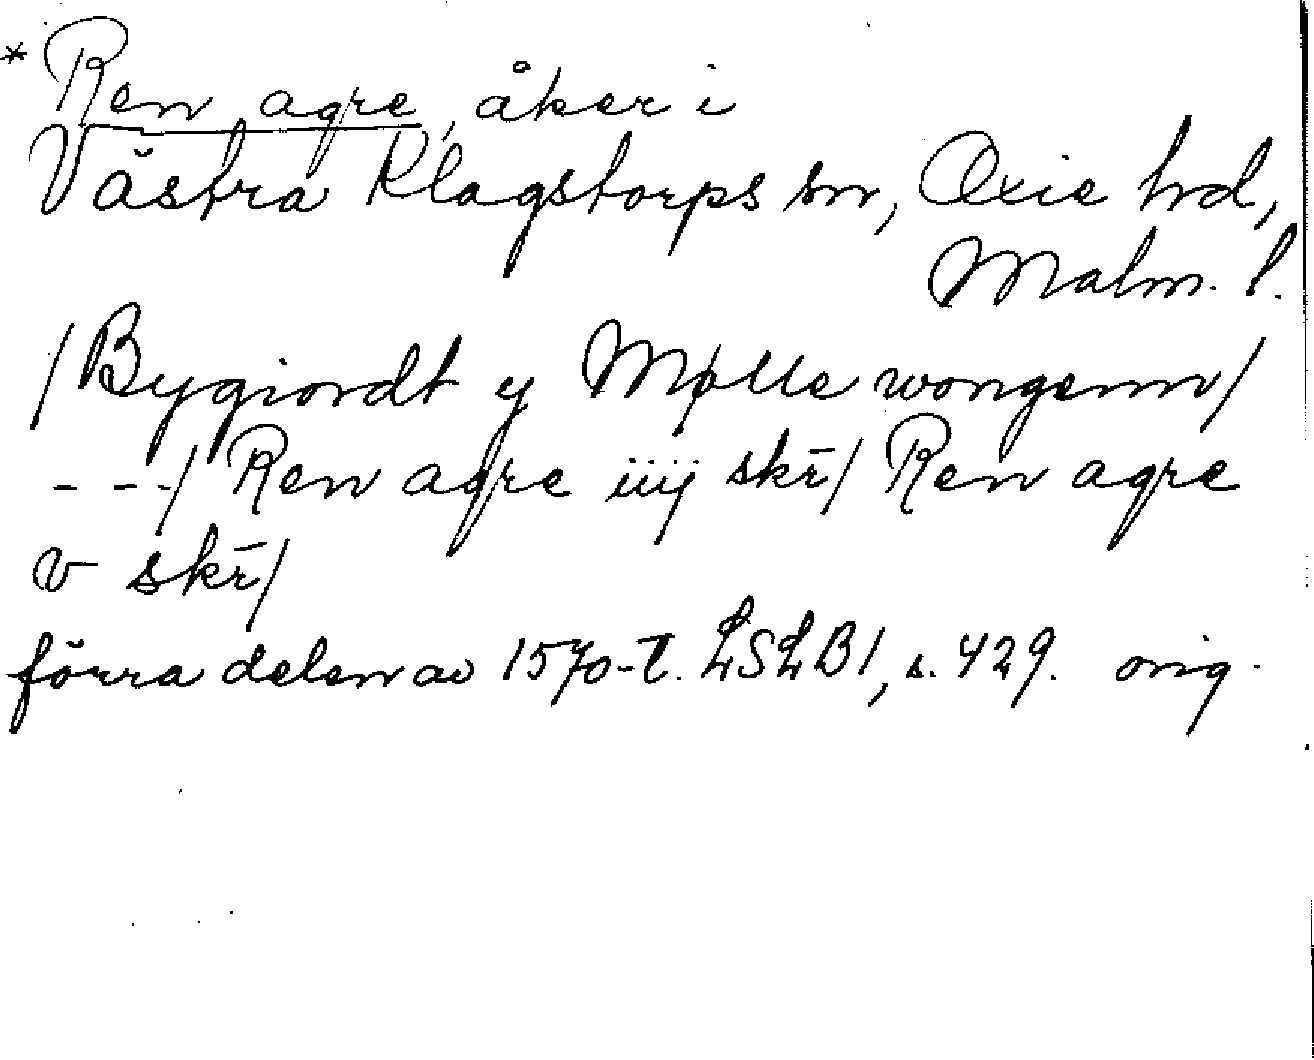 * Ren agre, åker i
Västra Klagstorps sn, Oxie hd,
Malm. l.
/Bygiordt y Mølle wongenn/
- - -/ Ren agre iiij skr̄/ Ren agre
v skr̄/
förra delen av 1570-t. LSLB1, s. 429. orig.